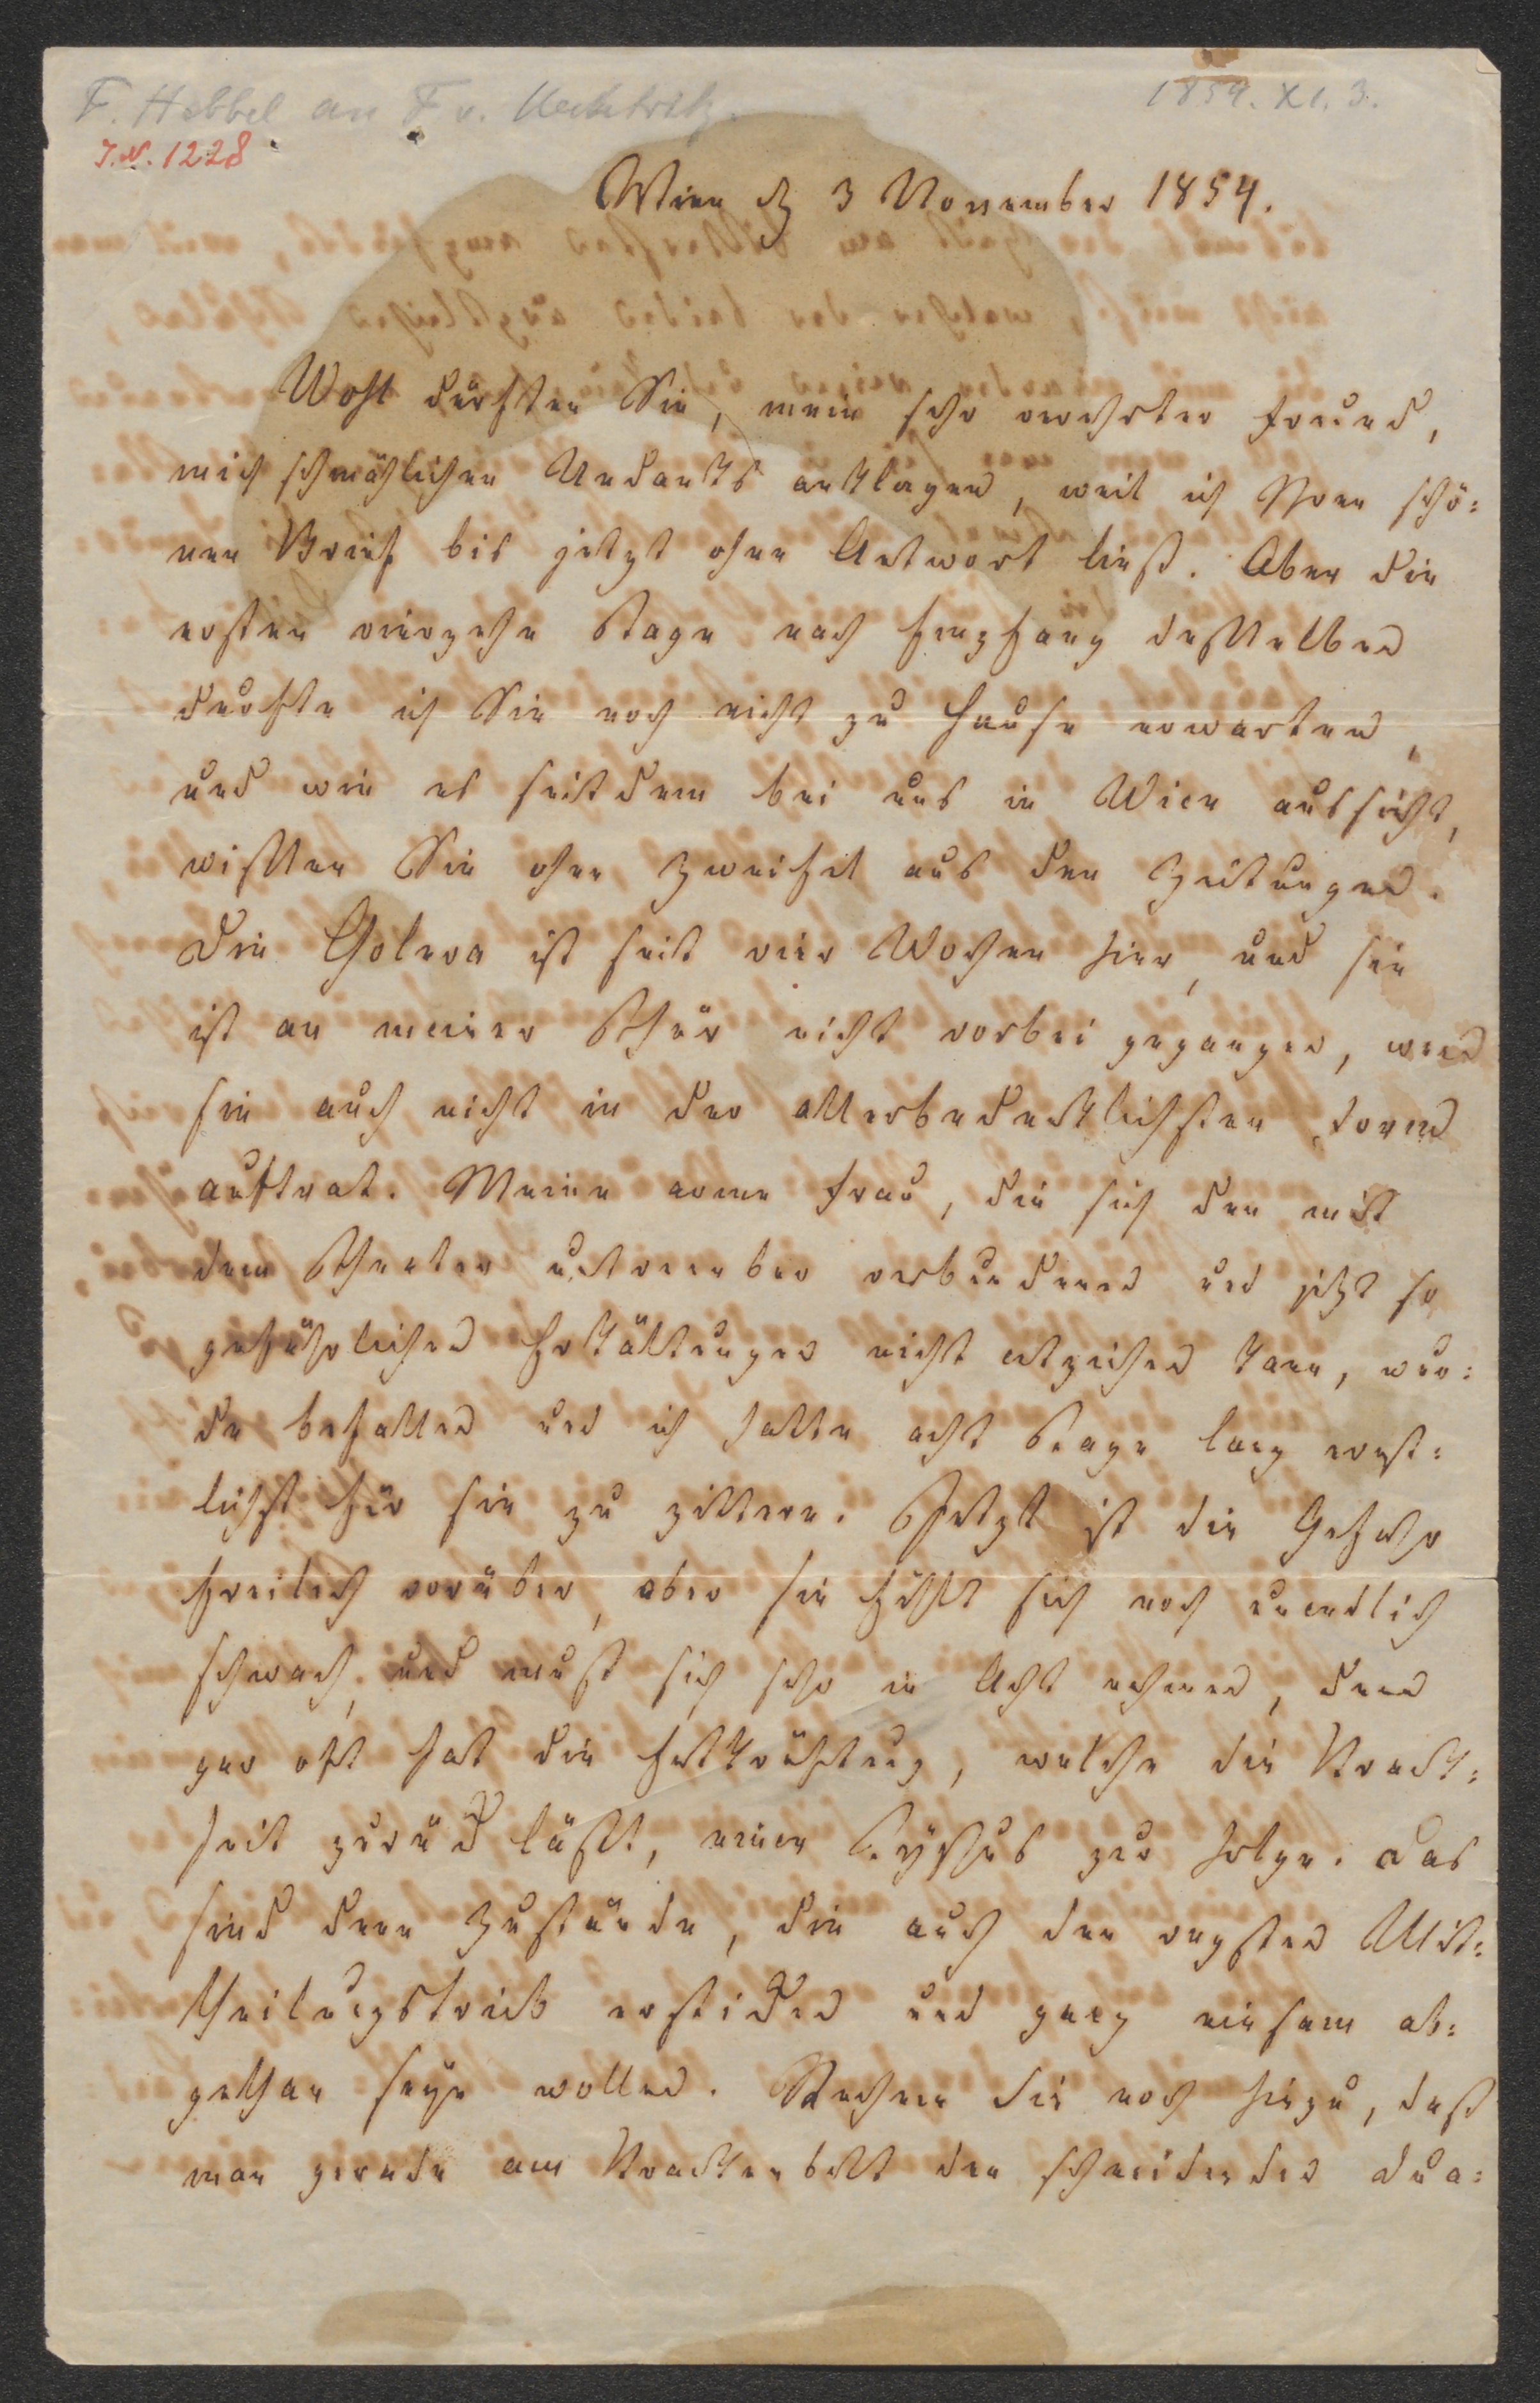 F. Hebbel an F. v. Uechtritz.
1854. XI. 3.
I.N. 1228
Wien d 3 November 1854.
Wohl dürften Sie, mein sehr verehrter Freund,
mich schmählichen Undanks anklagen, weil ich Ihren schö=
nen Brief bis jetzt ohne Antwort ließ. Aber die
ersten vierzehn Tage nach Empfang desselben
durfte ich Sie noch nicht zu Hause erwarten,
und wie es seitdem bei uns in Wien aussieht,
wissen Sie ohne Zweifel aus den Zeitungen.
Die Cholera ist seit vier Wochen hier, und sie
ist an meiner Thür nicht vorbei gegangen, wenn
sie auch nicht in der allerbedenklichsten Form
auftrat. Meine arme Frau, die sich den mit
dem Theater untrennbar verbundenen und jetzt so
gefährlichen Erkältungen nicht entziehen kann, wur=
de befallen und ich hatte acht Tage lang ernst=
lichst für sie zu zittern. Jetzt ist die Gefahr
freilich vorüber, aber sie fühlt sich noch unendlich
schwach, und muß sich sehr in Acht nehmen, denn
gar oft hat die Entkräftung, welche die Krank=
heit zurück läßt, einen Typhus zur Folge. Das
sind denn Zustände, die auch den regsten Mit=
theilungstrieb ersticken und ganz einsam ab=
gethan seyn wollen. Rechnen Sie noch hinzu, daß
man gerade am Krankenbett den schneidenden Dua=